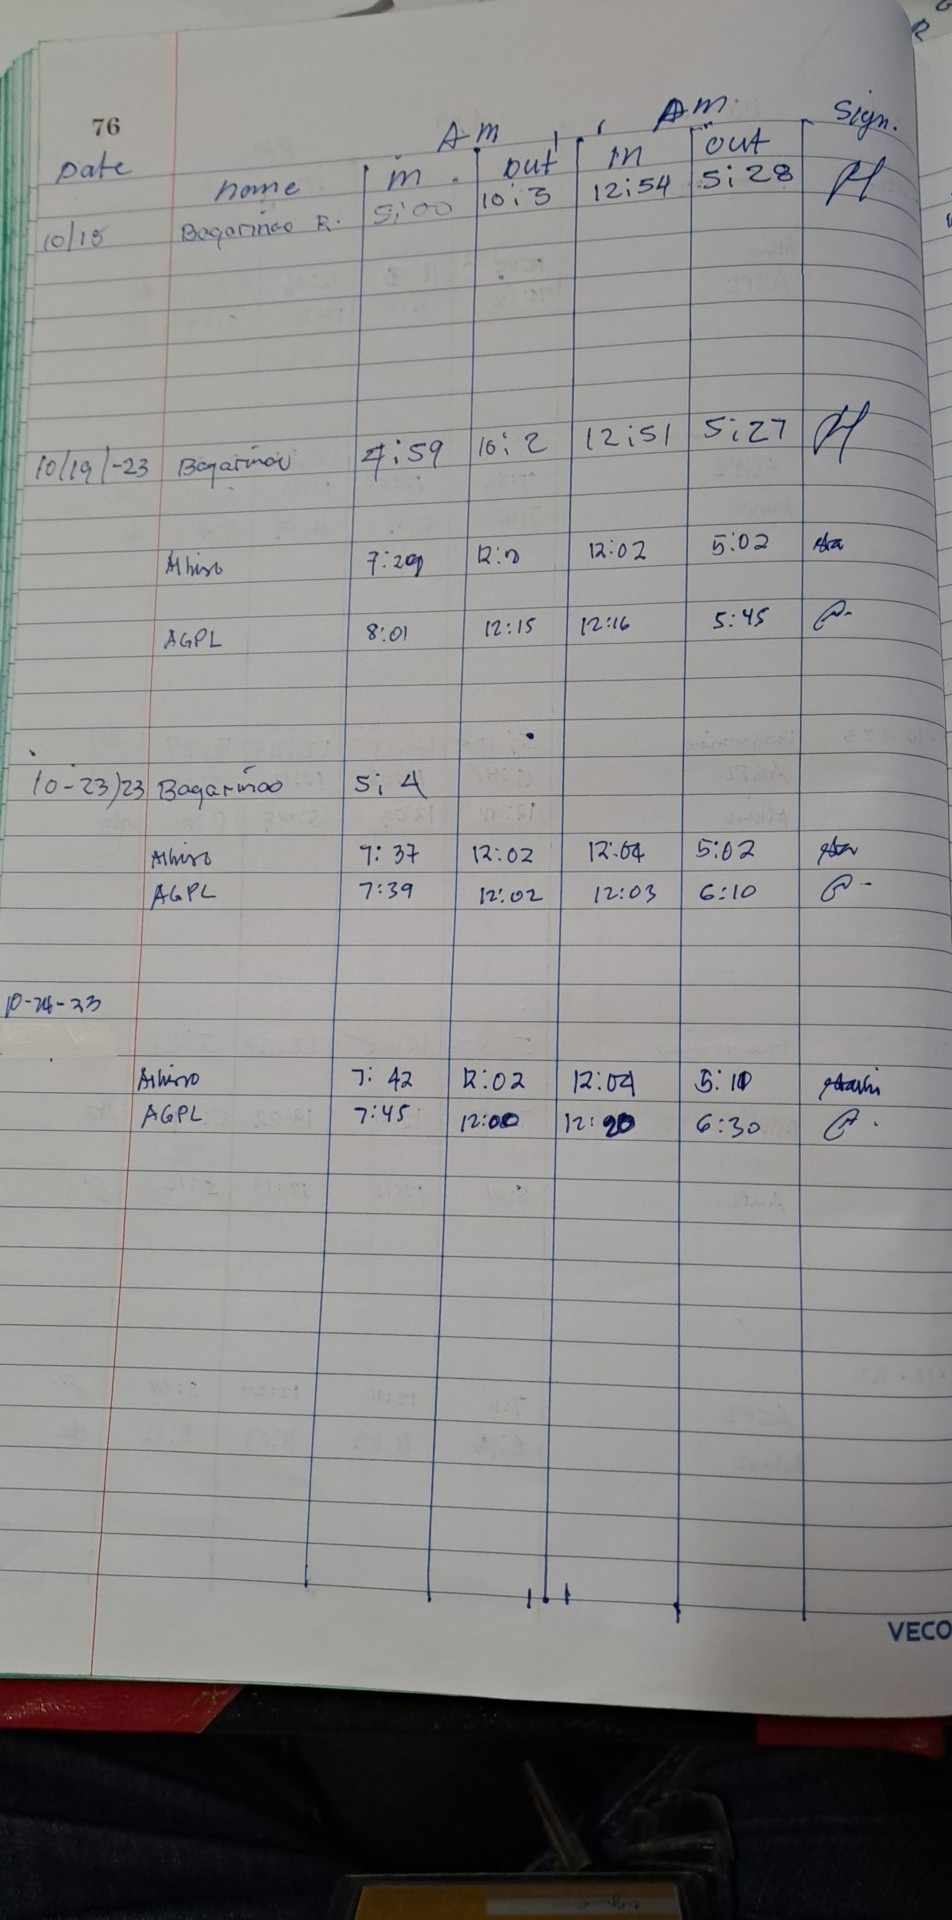 76
Am Am. Sign.
Date name in. out in out
10/18 Bagarinao R. 5:00 10:3 12:54 5:28
10/19/-23 Bagarinao 4:59 10:2 12:51 5:27
Albiso 7:29 12:2 12:02 5:02
AGPL 8:01 12:15 12:16 5:45
10-23/23 Bagarinao 5:4
Albiso 7:37 12:02 12:04 5:02
AGPL 7:39 12:02 12:03 6:10
10-24-23
Albiso 7:42 12:02 12:04 5:10
AGPL 7:45 12:00 12:20 6:30
VECO